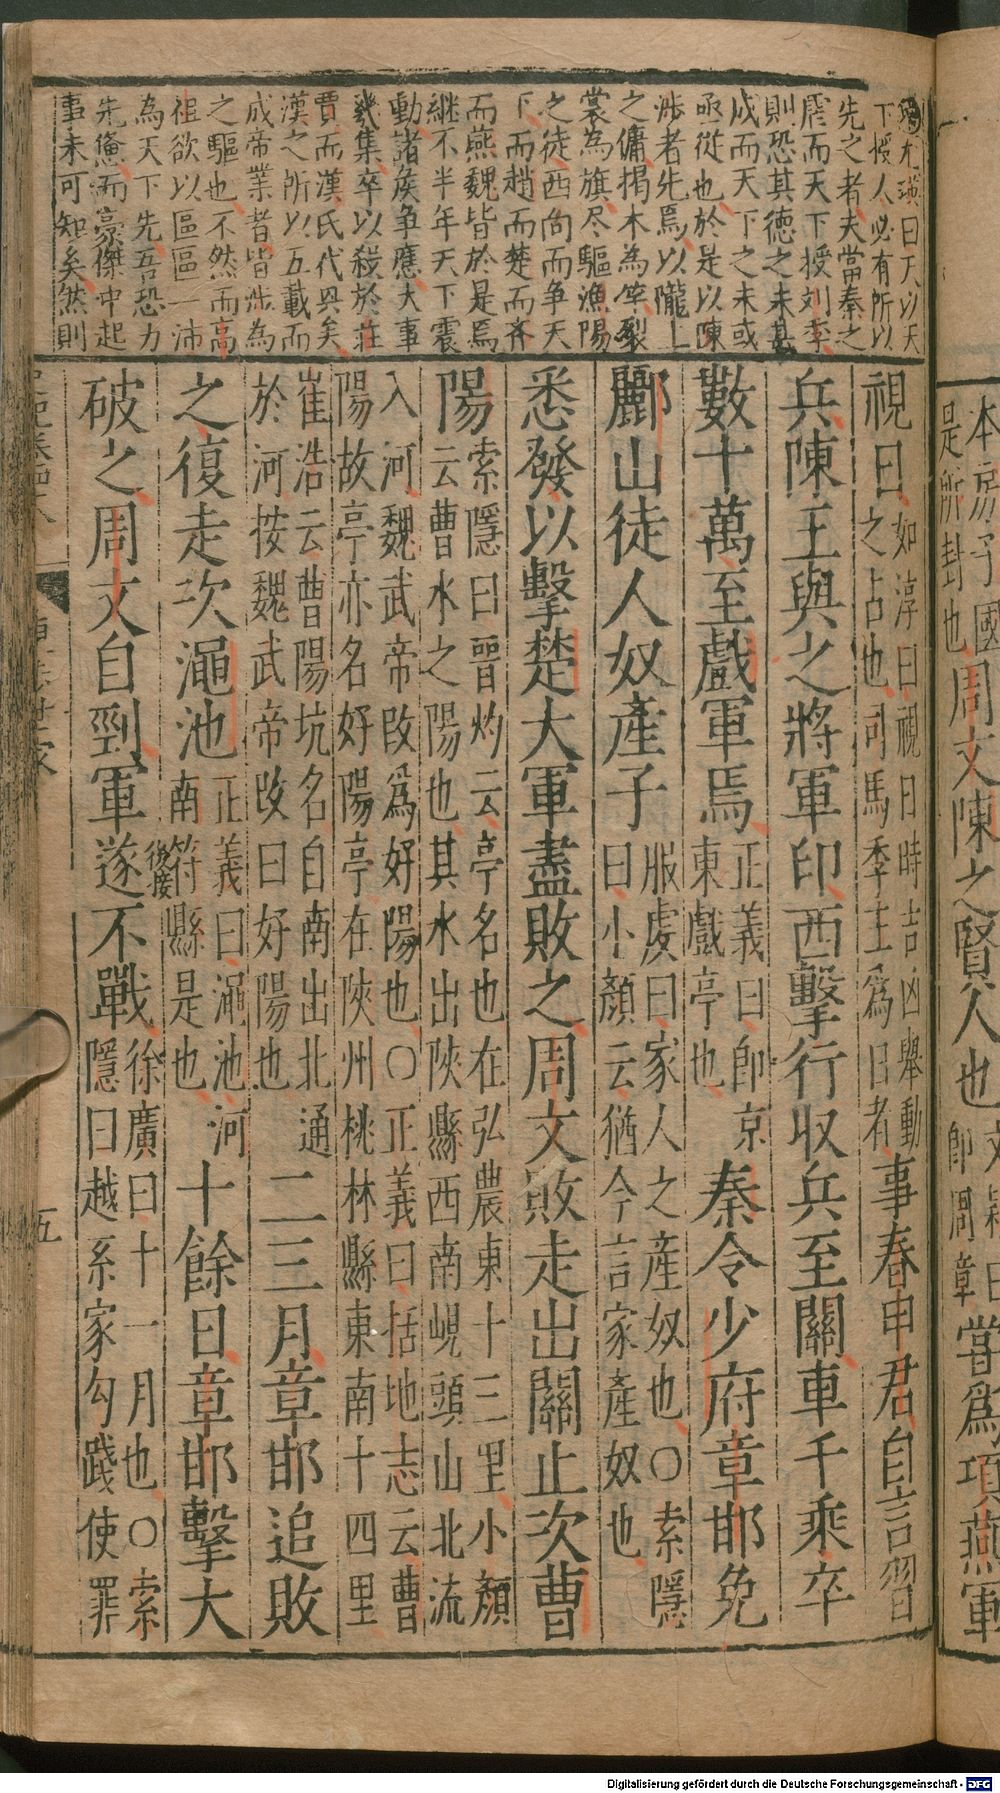 本房子國
是所封也
周文陳之賢人也
文穎曰
即周章
嘗爲項燕軍
曰天以天
下授人必有所以
先之者夫當秦之
虐而天下授刘季
則恐其德之未甚
成而天下之未或
亟從也於是以陳
涉者先焉以隴上
之傭揭木為竿裂
裳為旗尽驅漁陽
之徒西向而争天
下而趙而楚而斉
而燕魏皆於是焉
継不半年天下震
動諸矦争應大事
幾集卒以殺於莊
賈而漢氏代興矣
漢之所以五載而
成帝業者皆涉為
之驅也不然而高
祖欲以區區一沛
為天下先吾恐力
先憊而豪傑中起
事未可知矣然則
視日
如淳曰視日時吉凶舉動
之占也司馬季主爲日者
事春申君自言習
兵陳王與之將軍印西擊行収兵至關車千乘卒
數十萬至戲軍焉
正義曰即京
東戲亭也
秦令少府章邯免
酈山徒人奴產子
服虔曰家人之產奴也○索隱
曰小顏云猶今言家產奴也
悉發以擊楚大軍盡敗之周文敗走出關止次曹
陽
索隱曰晉灼云亭名也在弘農東十三里小顏
云曹水之陽也其水出陝縣西南峴頭山北流
入河魏武帝改爲好陽也○正義曰括地志云曹
陽故亭亦名好陽亭在陝州桃林縣東南十四里
崔浩云曹陽坑名自南出北通
於河按魏武帝改曰好陽也
二三月章邯追敗
之復走次澠池
正義曰澠池河
南符縣是也
十餘日章邯擊大
後接
破之周文自剄軍遂不戰
徐廣曰十一月也○索
隱曰越系家勾踐使罪
五
Digitalisierung gefördert durch die Deutsche Forschungsgemeinschaft - DFG